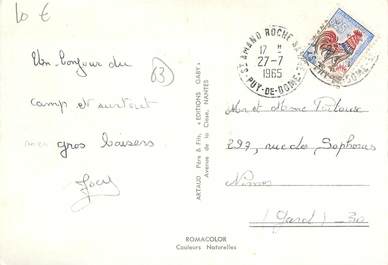 10 €
Un bonjour du
camp et surtout
gros baisers
Jocy
B
ARTAUD Père & Fils, « EDITIONS GABY »
Avenue de la Close, NANTES
ROMACOLOR
Couleurs Naturelles
ST AMAND ROCHE
17 H
27-7
1965
PUY-DE-DOME
Mr et Mme Toulouse
299, rue des Sophoras
Nîmes
(Gard)